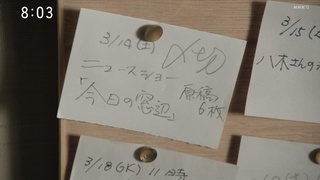 8:03
3/14(土) 〆切
ニュースショー
「今日の窓辺」
原稿
6枚
3/15(
八木さんの
3/18(GK) 11時